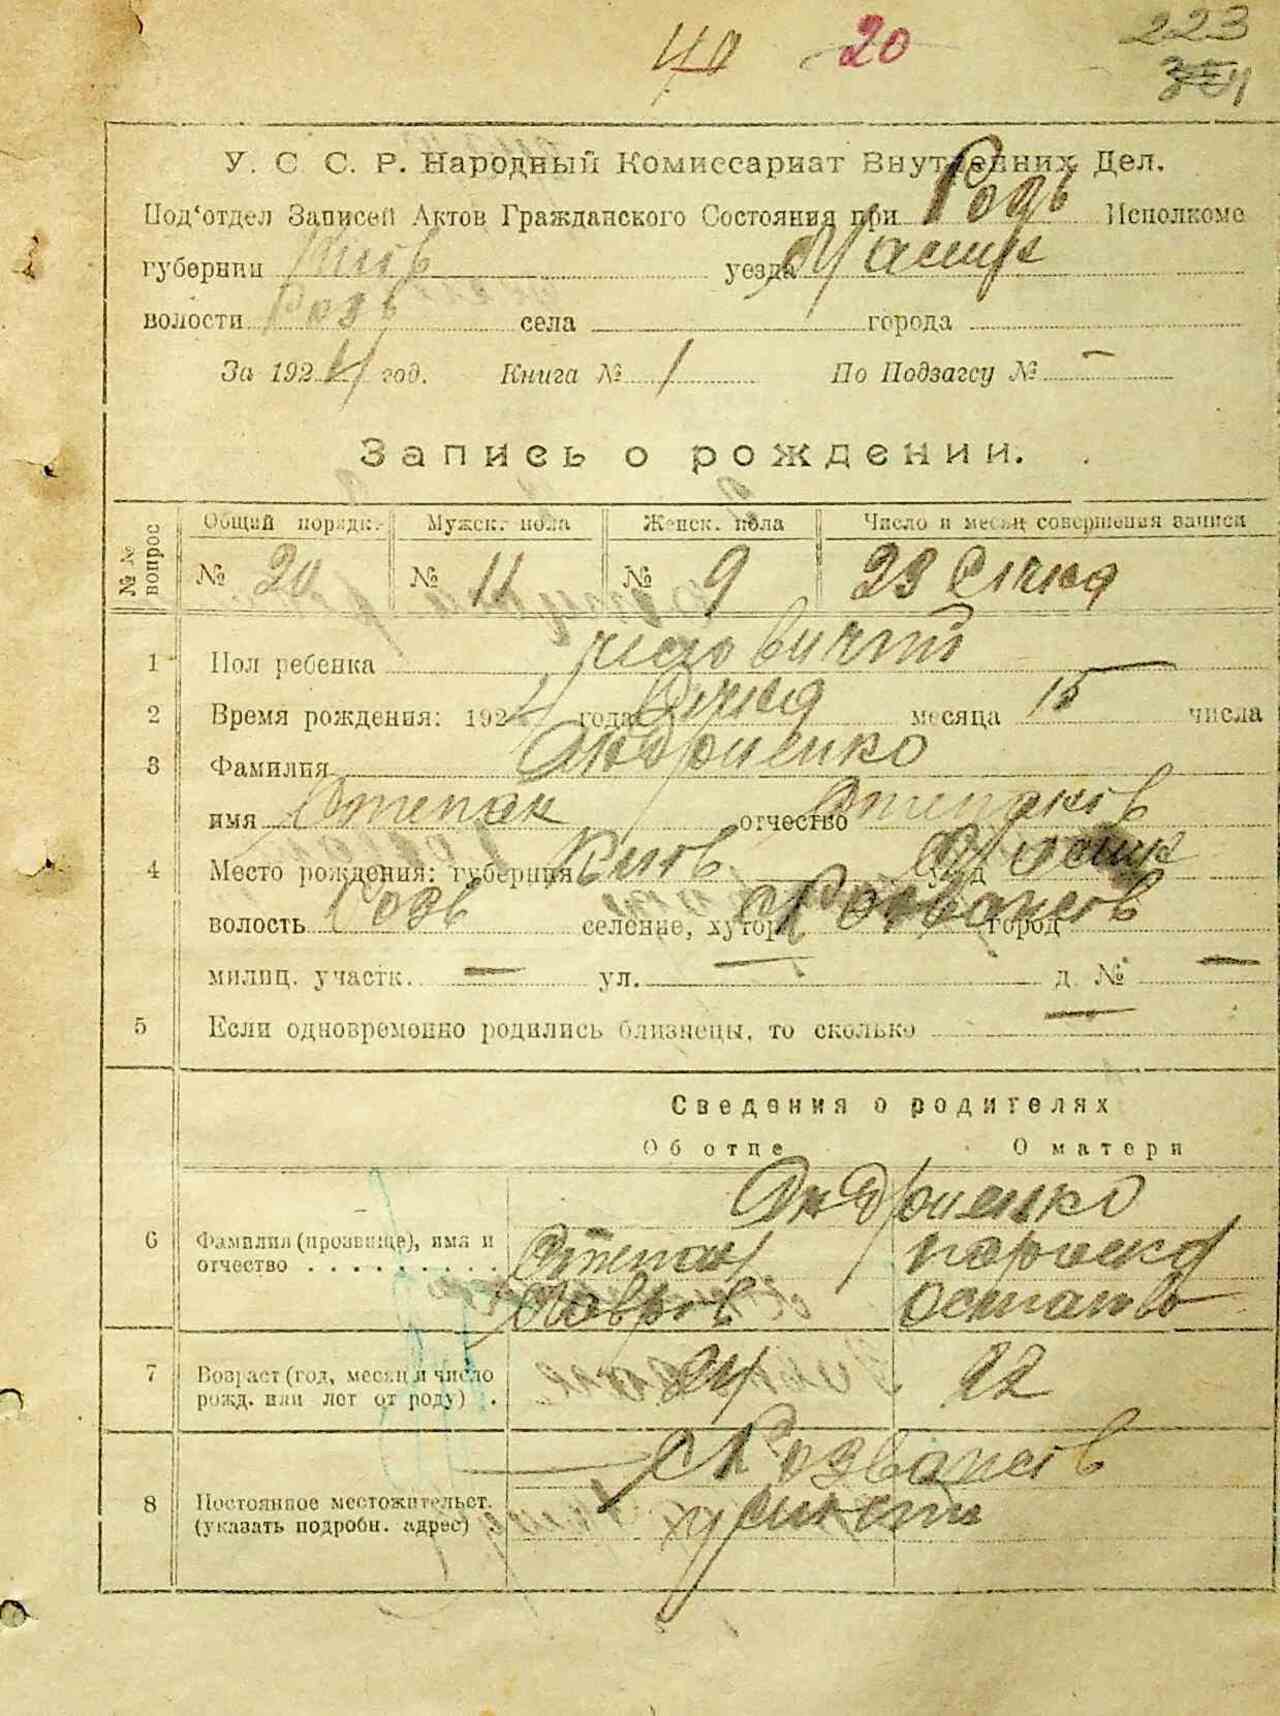 40 20 223
У. С. С. Р. Народный Комиссариат Внутренних Дел.
Под‘отдел Записей Актов Гражданского Состояния при Розв Исполкоме
губернии Київ уезда
волости Розв села города
За 1924 год. Книга № 1 По Подзагсу № —
Запись о рождении.
№ № вопрос Общий порядк. Мужск. пола Женск. пола Число и месяц совершения записи
№ 20 № 11 № 9 23 Січня
1 Пол ребенка чоловичий
2 Время рождения: 1924 года Січня месяца 15 числа
3 Фамилия Андриенко
имя Степан отчество Степанів
4 Место рождения: губерния Київ уезд
волость Розв селение, хутор, город С Розважів
милиц. участк. — ул. — д. № —
5 Если одновременно родились близнецы, то сколько —
Сведения о родителях
Об отце О матери
Андриенко
6 Фамилия (прозвище), имя и отчество Степан Параска
Лавров Остапов
7 Возраст (год, месяц и число рожд. или лет от роду) 24 22
8 Постоянное местожительст. (указать подробн. адрес) С Розважів